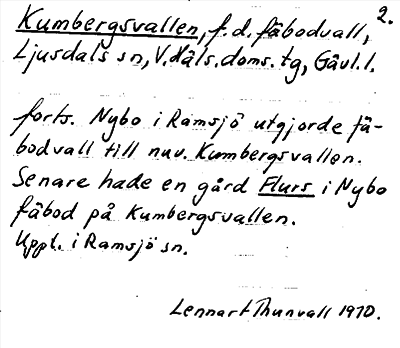 2.
Kumbergsvallen, f.d. fäbodvall,
Ljusdals sn, V.Häls.doms.tg, Gävl.l.
forts. Nybo i Ramsjö utgjorde fä-
bodvall till nuv. Kumbergsvallen.
Senare hade en gård Flurs i Nybo
fäbod på Kumbergsvallen.
Uppl. i Ramsjö sn.
Lennart Thunvall 1970.